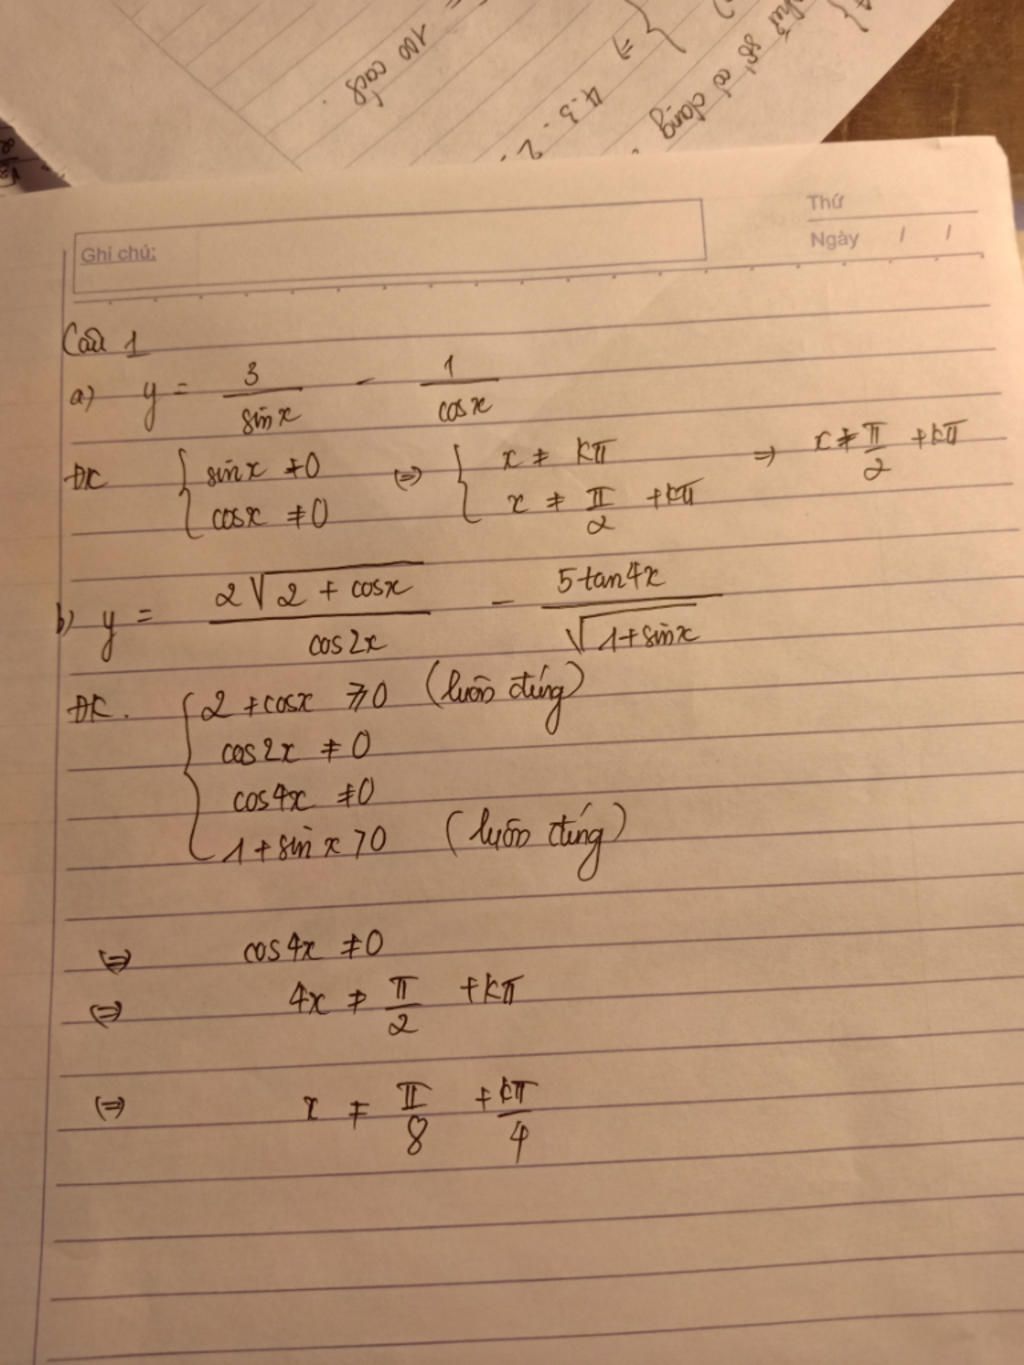 100 cách.
=> {
4.3.2.
chữ số có dạng
Ghi chú:
Thứ
Ngày / /
Câu 1
a) y = 3/sinx - 1/cosx
ĐK { sinx ≠ 0 <=> { x ≠ kπ => x ≠ π/2 + kπ
cosx ≠ 0 x ≠ π/2 + kπ
b) y = 2√(2 + cosx)/cos2x - 5tan4x/√(1+sinx)
ĐK. { 2 + cosx ⩾ 0 (luôn đúng)
cos2x ≠ 0
cos4x ≠ 0
1 + sinx > 0 (luôn đúng)
<=> cos4x ≠ 0
<=> 4x ≠ π/2 + kπ
<=> x ≠ π/8 + kπ/4